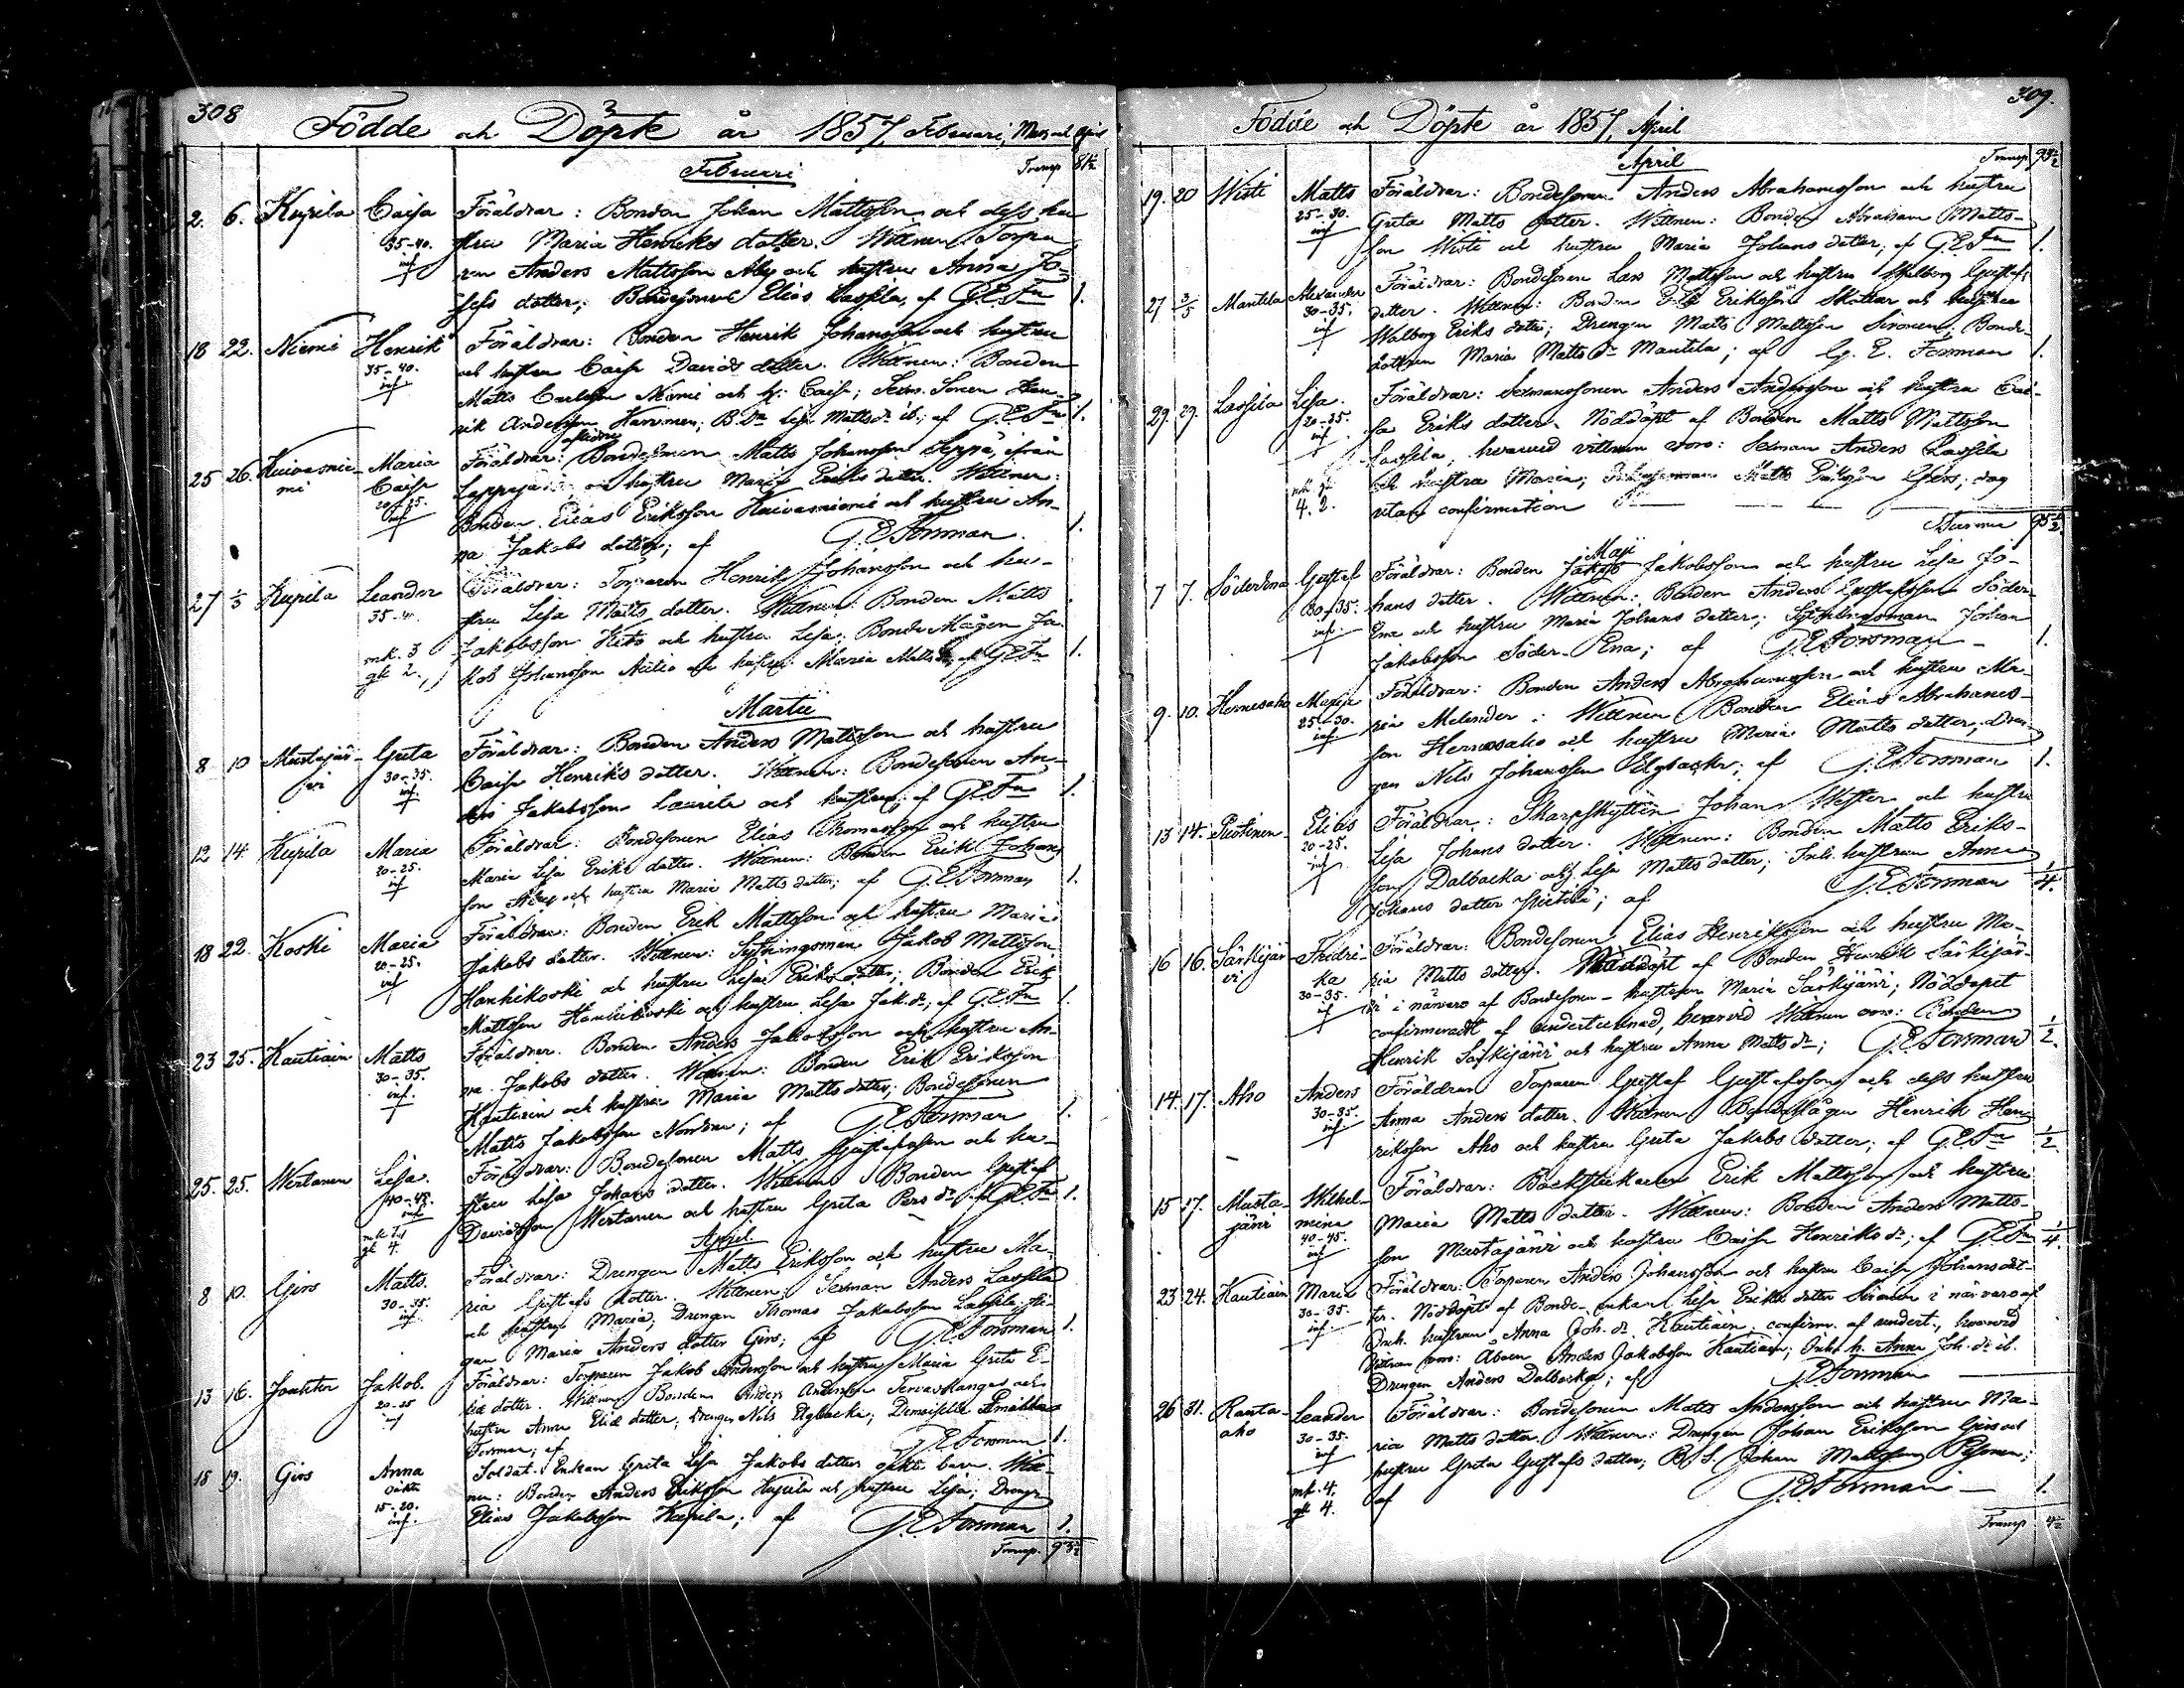 308
Födde och Döpte år 1857, Februari, Mars och April
Februari
Transp. 81½
2. 6. Kupila Caisa Föräldrar: Bonden Johan Mattsson och dess hu-
35-40. stru Maria Henriks dotter. Wittnen: Torpa-
inf ren Anders Mattsson Aby och hustru Anna Jo-
sefs dotter; Bondesonen Elias Lassila, af G.E.Fn 1.
18 22. Niemi Henrik Föräldrar: Bonden Henrik Johansson och hustru
35-40. och hustru Caisa Davids dotter. Wittnen: Bonden
inf Matts Carlsson Niemi och h. Caisa; Sexm. Sonen Hen-
rik Andersson Harimen; B.Dr Lisa Mattsdr ib.; af G.E.Fn 1.
25 26. Kuivasnie- Maria Föräldrar: Bondesonen Matts Johansson Seppä, ifrån
mi Caisa Lappajärvi, och hustru Maria Eriks dotter. Wittnen:
20-25. Bonden Elias Eriksson Kuivasniemi och hustru An-
inf na Jakobs dotter; af G.E.Forsman. 1.
27 1/3 Kupila Leander Föräldrar: Torparen Henrik Johansson och hu-
35-40. stru Lisa Matts dotter. Wittnen: Bonden Matts
mk. 3 Jakobsson Hito och hustru Lisa; Bonde Mågen Ja-
qk 2. kob Johansson Aulio och hustru Maria Mattsdr, af G.E.Fn 1.
Martii
8 10 Mustajär- Greta Föräldrar: Bonden Anders Mattsson och hustru
vi 30-35. Caisa Henriks dotter. Wittnen: Bondesonen An-
inf. ders Jakobsson Laurila och hustru; af G.E.Fn 1.
12 14. Kupila Maria Föräldrar: Bondesonen Elias Thomasson och hustru
20-25. Maria Lisa Eriks dotter. Wittnen: Bonden Erik Johans-
inf son Aby och hustru Maria Matts dotter; af G.E.Forsman 1.
18 22. Koski Maria Föräldrar: Bonden Erik Mattsson och hustru Maria
20-25. Jakobs dotter. Wittnen: Sytningsman Jakob Mattsson
inf Hanhikoski och hustru Lisa Eriks dotter; Bonden Erik
Mattsson Hanhikoski och hustru Lisa Jak.dr; af G.E.Fn 1.
23 25. Kautiain Matts Föräldrar. Bonden Anders Jakobsson och hustru An-
30-35. na Jakobs dotter. Wittnen: Bonden Erik Eriksson
inf. Kautiain och hustru Maria Matts dotter; Bondesonen
Matts Jakobsson Norrena; af G.E.Forsman 1.
25. 25. Wertanen Lisa. Föräldrar: Bondesonen Matts Gustafsson och hu-
40-45. stru Lisa Johans dotter. Wittnen: Bonden Gustaf
inf Davidsson Wertanen och hustru Greta Pers dr af G.E.Fn 1.
qk 4.
April
8 10. Girs Matts. Föräldrar: Drengen Matts Eriksson och hustru Ma-
30-35. ria Gustafs dotter. Wittnen: Sexman Anders Lassila
inf. och hustru Maria; Drengen Thomas Jakobsson Lassila; Pi-
gan Maria Anders dotter Girs; af G.E.Forsman 1.
13 16. Jouhten Jakob. Föräldrar: Torparen Jakob Andersson och hustru Maria Greta E-
20-25 riks dotter. Wittnen: Bonden Anders Andersson Tervaskangas och
inf hustru Anna Eriks dotter; Drengen Nils Elgbacka; Demoiselle Emilia
Forsman; af G.E.Forsman 1.
15 19. Girs Anna Soldat Enkan Greta Lisa Jakobs dotter oäkta barn. Witt-
oäkta nen: Bonden Anders Eriksson Kupila och hustru Lisa; Drengen
15-20. Elias Jakobsson Kupila; af G.E.Forsman 1.
inf.
Transp. 93½
309.
Födde och Döpte år 1857, April
April
Transp. 93½
19. 20 Wisti Matts Föräldrar: Bondesonen Anders Abrahamsson och hustru
25-30. Greta Matts dotter. Wittnen: Bonden Abraham Matts-
inf son Wisti och hustru Maria Johans dotter; af G.E.Fn 1.
27 3/5 Mantila Alexander Föräldrar: Bondesonen Lars Mattsson och hustru Walborg Gustafs
30-35. dotter. Wittnen: Bonden Erik Eriksson Skottar och hustru
inf Walborg Eriks dotter; Drengen Matts Mattsson Sironen; Bonde-
dottren Maria Matts dr Mantila; af G. E. Forsman 1.
29. 29. Lassila Lisa. Föräldrar: Sexmanssonen Anders Andersson och hustru Cai-
20-25. sa Eriks dotter. Nöddöpt af Bonden Matts Mattsson
inf. Lassila, hvarvid vittnen voro: Sexman Anders Lassila
mk qk och hustru Maria; Matts Girs; dag
4. 2. confirmation
Summa 95½
Maji
7 7. Söderena Gustaf Föräldrar: Bonden Jakob Jakobsson och hustru Lisa Jo-
30-35. hans dotter. Wittnen: Bonden Anders Gustafsson Söder-
inf. Ena och hustru Maria Johans dotter; Sytningsman Johan
Jakobsson Söder-Ena; af G.E.Forsman 1.
9. 10. Hernesaho Maria Föräldrar: Bonden Anders Abrahamsson och hustru Ma-
25-30. ria Melender. Wittnen: Bonden Elias Abrahams-
inf son Hernesaho och hustru Maria Matts dotter; Dren-
gen Nils Johansson Elgbacka; af G.E.Forsman 1.
13 14. Puotinen Elias Föräldrar: Skarpskytten Johan Wester och hustru
20-25. Lisa Johans dotter. Wittnen: Bonden Matts Eriks-
inf son Dalbacka och h. Lisa Matts dotter; Inh. hustrun Anna
Johans dotter; af G.E.Forsman ¼.
16 16. Särkijär- Fredri- Föräldrar: Bondesonen Elias Henriksson och hustru Ma-
vi ka ria Matts dotter. Nöddöpt af Bonden Henrik Särkijär-
30-35. vi i närvaro af Bondesone-hustrun Maria Särkijärvi; Nöddopet
inf confirmeradt af undertecknad, hvarvid Wittnen voro: Bonden
Henrik Särkijärvi och hustru Anna Matts dr; G.E.Forsman ½.
14. 17. Aho Anders Föräldrar: Torparen Gustaf Gustafsson och dess hustru
30-35. Anna Anders dotter. Wittnen: BondeMågen Henrik Hen-
inf riksson Aho och hustru Greta Jakobs dotter; af G.E.Fn ½
15 17. Musta- Wilhel- Föräldrar: Backstukarlen Erik Mattsson och hustru
järvi mina Maria Matts dotter. Wittnen: Bonden Anders Matts-
40-45. son Mustajärvi och hustru Caisa Henriks dr; af G.E.Fn ¼.
inf
23 24. Kautiain Maria Föräldrar: Torparen Anders Johansson och hustru Caisa Johans dot-
30-35. ter. Nöddöpt af Bonde-enkan Lisa Eriks dotter Sironen i närvaro af
inf. Inh. hustrun Anna Joh. dr Kautiain, confirm. af undert., hvarvid
Wittnen voro: Åboen Anders Jakobsson Kautiain; Inh. h. Anna Joh. dr ib.
Drengen Anders Dalbacka; af G.E.Forsman
26 31. Ranta- Leander Föräldrar: Bondesonen Matts Andersson och hustru Ma-
aho 30-35. ria Matts dotter. Wittnen: Drengen Johan Eriksson Girs och
inf hustru Greta Gustafs dotter; B.S. Johan Mattsson
mk. 4. af G.E.Forsman 1.
qk 4.
Transp. 4½